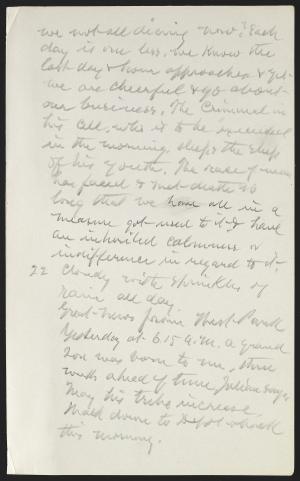 we not all dieing now? Each
day is one less. we know the
last day & hour approaches & yet
we are cheerful & go about
our business. The Criminal in
his cell, who is to be executed
in the morning, sleeps the sleep
of his youth. The race of men
has faced & met death so
long that we have all in a
measure got used to it & have
an inherited calmness or
indifference in regard to it.
22 Cloudy with sprinkles of
rain all day.
Great news from West Park
Yesterday at 6.15 a.m. a grand
son was born to me, three
weeks ahead of time, Julian says
May his tribe increase.
Walk down to
this morning.